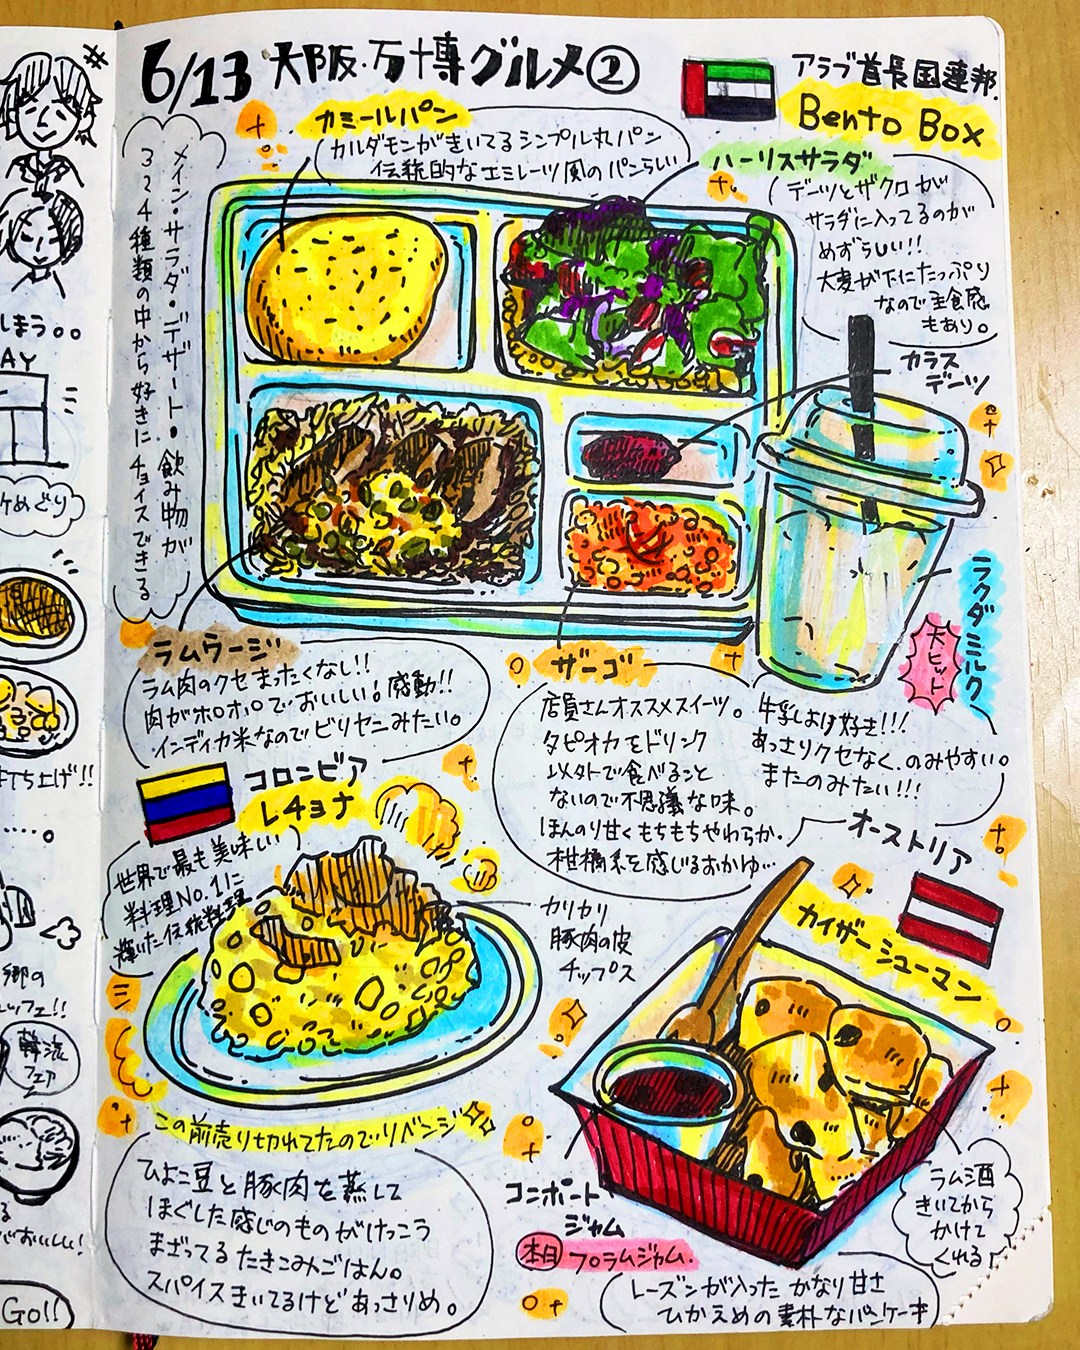 6/13 大阪・万博グルメ②
アラブ首長国連邦
Bento Box
カミールパン
カルダモンがきいてるシンプル丸パン
伝統的なエミレーツ風のパンらしい
ハーリスサラダ
デーツとザクロが
サラダに入ってるのが
めずらしい!!
大麦が下にたっぷり
なので主食感
もあり。
メイン・サラダ・デザート・飲み物が
324種類の中から好きにチョイスできる
カラス
デーツ
ラクダミルク
大ヒット
牛乳より好き!!!
あっさりクセなく、のみやすい。
またのみたい!!!
ラムラージ
ラム肉のクセまったくなし!!
肉がホロホロで、おいしい。感動!!
インディカ米なのでビリヤニみたい。
ザーゴ
店員さんオススメスイーツ。
タピオカをドリンク
以外で食べること
ないので不思議な味。
ほんのり甘くもちもちやわらか。
柑橘系を感じるおかゆ…
コロンビア
レチョナ
世界で最も美味しい
料理No.1に
輝いた伝統料理
カリカリ
豚肉の皮
チップス
この前売り切れてたのでリベンジ
ひよこ豆と豚肉を蒸して
ほぐした感じのものがけっこう
まざってるたきこみごはん。
スパイスきいてるけどあっさりめ。
オーストリア
カイザーシューマン
コンポート
ジャム
本日 プラムジャム
ラム酒
きいてから
かけて
くれる!
レーズンが入ったかなり甘さ
ひかえめの素朴なパンケーキ
しまう。。
AY
ケめぐり
打ち上げ!!
……。
郷の
ッフェ!!
韓流
フェア
る
がおいしい!
Go!!